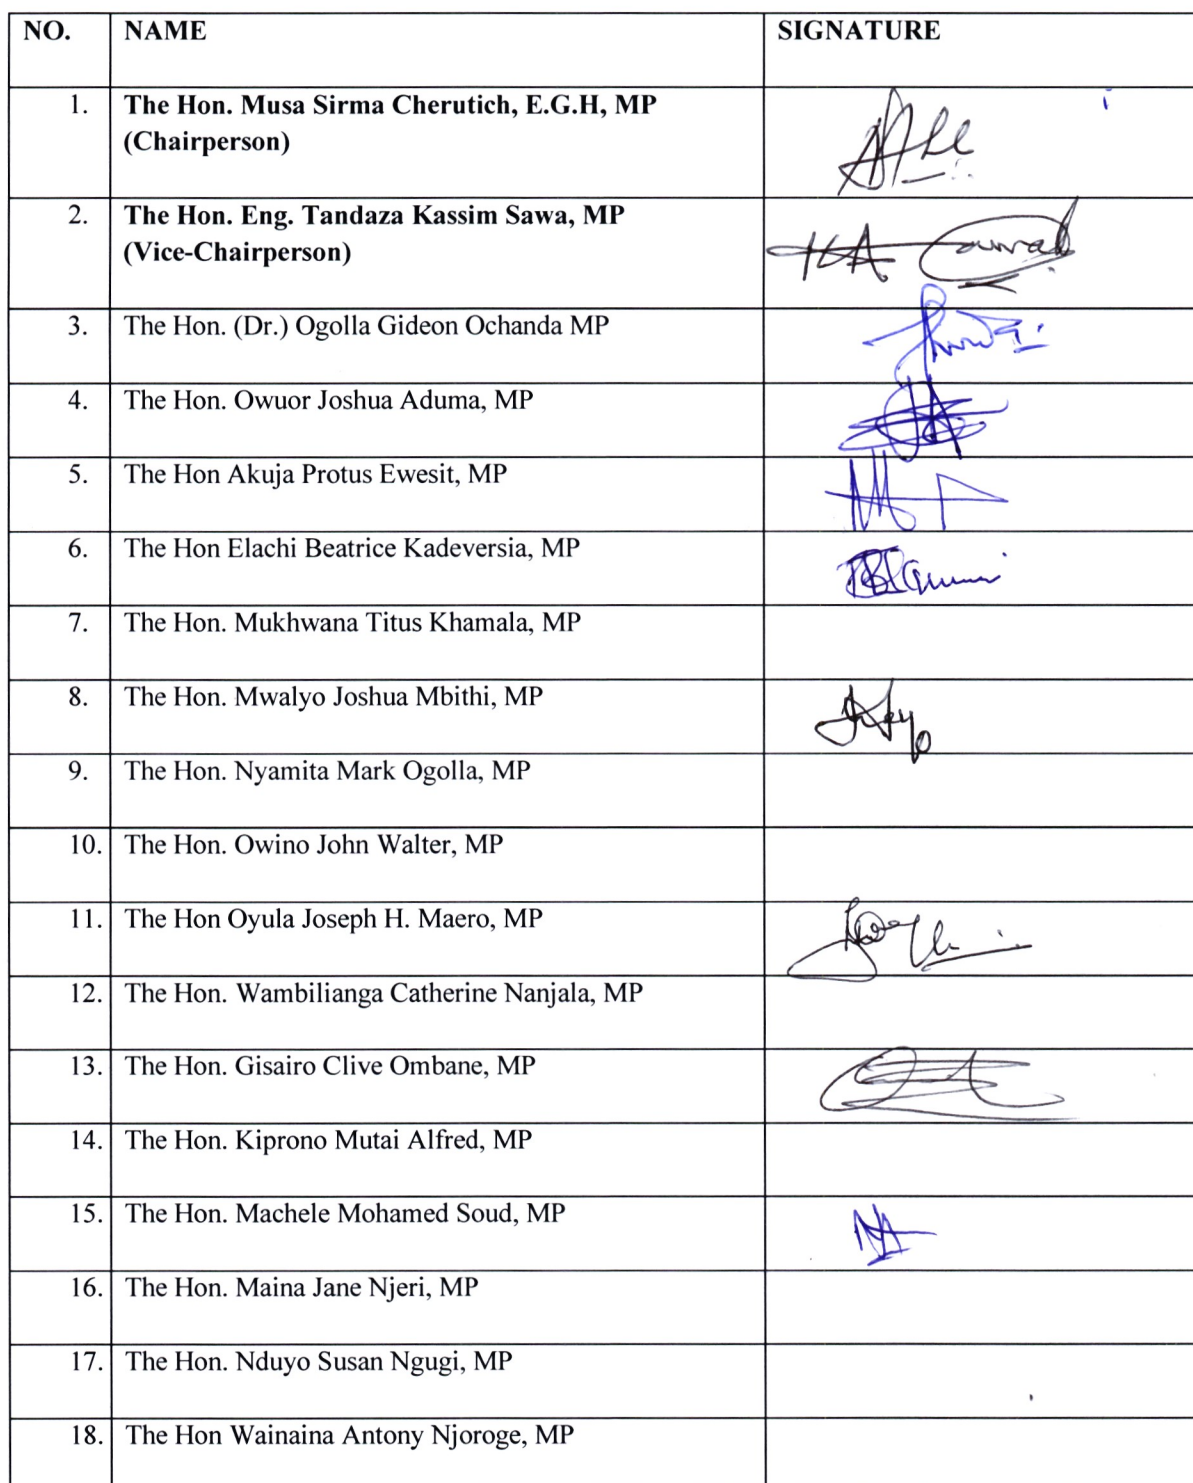 NO. NAME SIGNATURE
1. The Hon. Musa Sirma Cherutich, E.G.H, MP
(Chairperson)
2. The Hon. Eng. Tandaza Kassim Sawa, MP
(Vice-Chairperson)
3. The Hon. (Dr.) Ogolla Gideon Ochanda MP
4. The Hon. Owuor Joshua Aduma, MP
5. The Hon Akuja Protus Ewesit, MP
6. The Hon Elachi Beatrice Kadeversia, MP
7. The Hon. Mukhwana Titus Khamala, MP
8. The Hon. Mwalyo Joshua Mbithi, MP
9. The Hon. Nyamita Mark Ogolla, MP
10. The Hon. Owino John Walter, MP
11. The Hon Oyula Joseph H. Maero, MP
12. The Hon. Wambilianga Catherine Nanjala, MP
13. The Hon. Gisairo Clive Ombane, MP
14. The Hon. Kiprono Mutai Alfred, MP
15. The Hon. Machele Mohamed Soud, MP
16. The Hon. Maina Jane Njeri, MP
17. The Hon. Nduyo Susan Ngugi, MP
18. The Hon Wainaina Antony Njoroge, MP